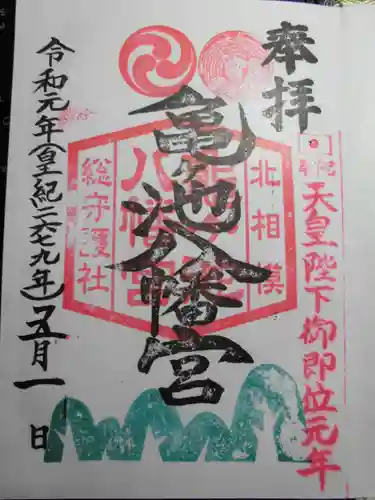 奉拝
天皇陛下御即位元年
亀ヶ池八幡宮
北相模
亀ヶ池
八幡宮
総守護社
令和元年(皇紀二六七九年)五月一日